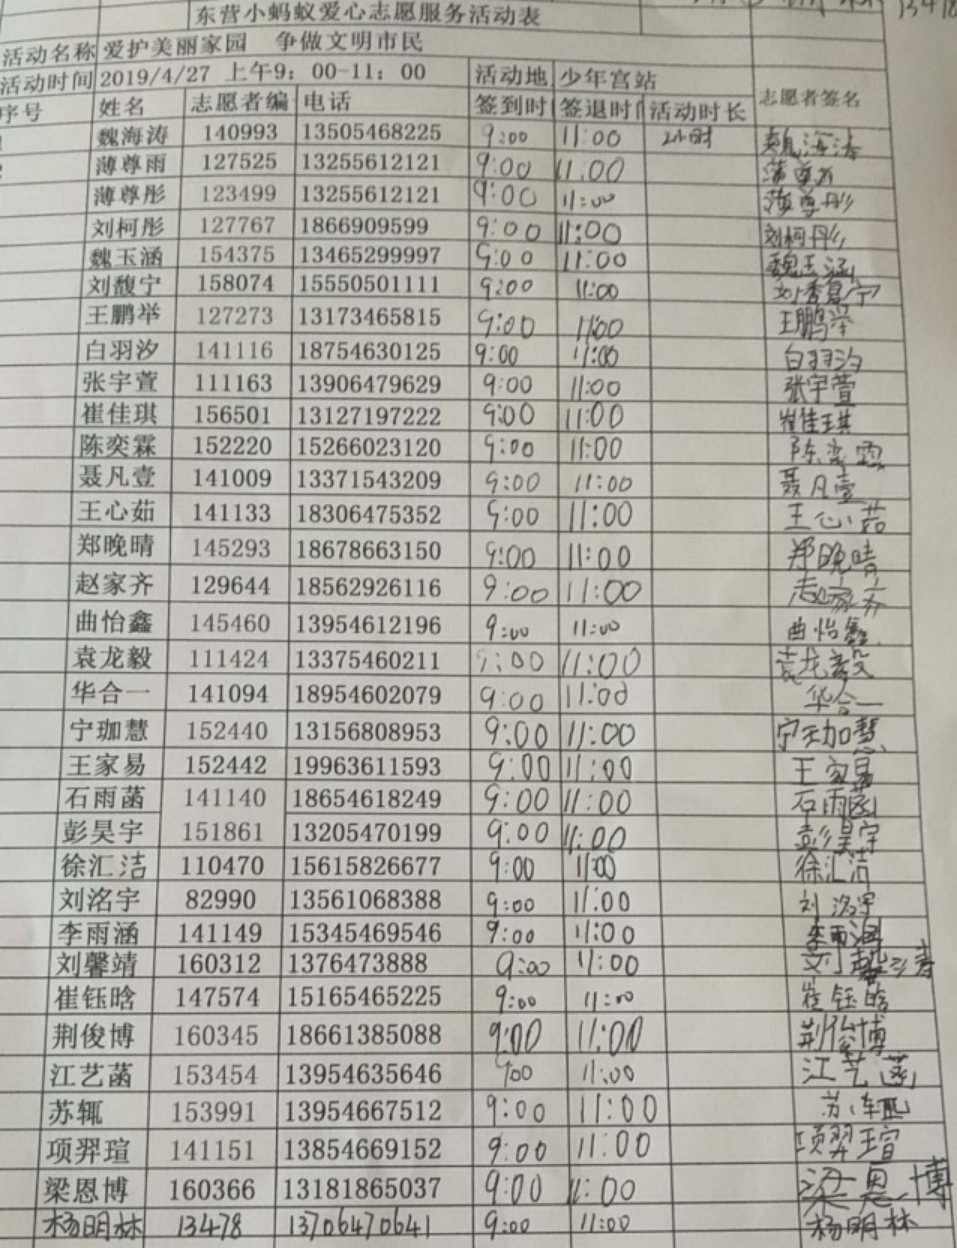 13478
东营小蚂蚁爱心志愿服务活动表
活动名称 爱护美丽家园 争做文明市民
活动时间 2019/4/27 上午9：00-11：00 活动地 少年宫站
序号 姓名 志愿者编 电话 签到时 签退时 活动时长 志愿者签名
魏海涛 140993 13505468225 9:00 11:00 2小时 魏海涛
薄尊雨 127525 13255612121 9:00 11:00 薄尊雨
薄尊彤 123499 13255612121 9:00 11:00 薄尊彤
刘柯彤 127767 1866909599 9:00 11:00 刘柯彤
魏玉涵 154375 13465299997 9:00 11:00 魏玉涵
刘馥宁 158074 15550501111 9:00 11:00 刘馥宁
王鹏举 127273 13173465815 9:00 11:00 王鹏举
白羽汐 141116 18754630125 9:00 11:00 白羽汐
张宇萱 111163 13906479629 9:00 11:00 张宇萱
崔佳琪 156501 13127197222 9:00 11:00 崔佳琪
陈奕霖 152220 15266023120 9:00 11:00 陈奕霖
聂凡壹 141009 13371543209 9:00 11:00 聂凡壹
王心茹 141133 18306475352 9:00 11:00 王心茹
郑晚晴 145293 18678663150 9:00 11:00 郑晚晴
赵家齐 129644 18562926116 9:00 11:00 赵家齐
曲怡鑫 145460 13954612196 9:00 11:00 曲怡鑫
袁龙毅 111424 13375460211 9:00 11:00 袁龙毅
华合一 141094 18954602079 9:00 11:00 华合一
宁珈慧 152440 13156808953 9:00 11:00 宁珈慧
王家易 152442 19963611593 9:00 11:00 王家易
石雨菡 141140 18654618249 9:00 11:00 石雨菡
彭昊宇 151861 13205470199 9:00 11:00 彭昊宇
徐汇洁 110470 15615826677 9:00 11:00 徐汇洁
刘洺宇 82990 13561068388 9:00 11:00 刘洺宇
李雨涵 141149 15345469546 9:00 11:00 李雨涵
刘馨靖 160312 1376473888 9:00 11:00 刘馨靖
崔钰晗 147574 15165465225 9:00 11:00 崔钰晗
荆俊博 160345 18661385088 9:00 11:00 荆俊博
江艺菡 153454 13954635646 9:00 11:00 江艺菡
苏辄 153991 13954667512 9:00 11:00 苏辄
项羿瑄 141151 13854669152 9:00 11:00 项羿瑄
梁恩博 160366 13181865037 9:00 11:00 梁恩博
杨明林 13478 13706470641 9:00 11:00 杨明林